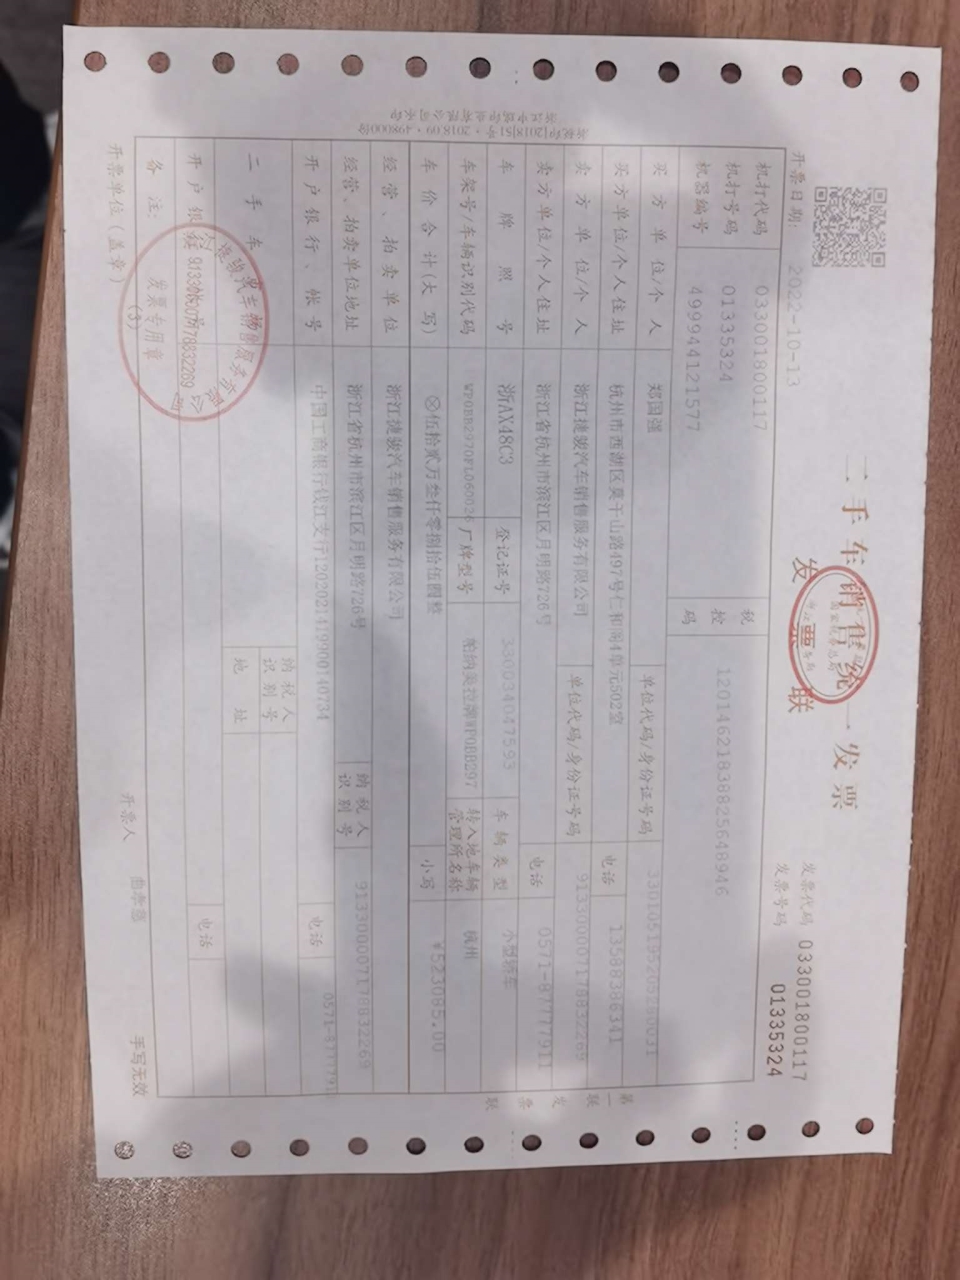 二手车销售统一发票
发票联
发票代码 033001800117
发票号码 01335324
开票日期: 2022-10-13
机打代码 033001800117
机打号码 01335324
机器编号 499944121577
税控码 12014621838825648946
买方单位/个人 郑国强 单位代码/身份证号码
买方单位/个人住址 杭州市西湖区莫干山路497号仁和阁4单元502室 电话 13588388341
卖方单位/个人 浙江捷骏汽车销售服务有限公司 单位代码/身份证号码 913300007178832269
卖方单位/个人住址 浙江省杭州市滨江区月明路726号 电话 0571-87777911
车牌照号 浙AX48C3 登记证号 330034047593 车辆类型 小型轿车
车架号/车辆识别代码 WP0BB2970FL060026 厂牌型号 帕纳美拉牌WP0BB297 转入地车辆管理所名称 杭州
车价合计(大写) ⊗伍拾贰万叁仟零捌拾伍圆整 小写 ¥523085.00
经营、拍卖单位 浙江捷骏汽车销售服务有限公司
经营、拍卖单位地址 浙江省杭州市滨江区月明路726号 纳税人识别号 913300007178832269
开户银行、帐号 中国工商银行钱江支行1202021419900140734 电话 0571-87777911
二手车 纳税人识别号
地址
开户银 电话
备注:
913300007178832269
发票专用章
(3)
开票单位(盖章) 开票人 手写无效
第一联 发票联